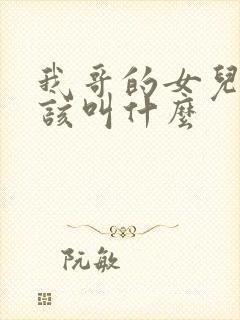 我哥的女兒
該叫什麼
阮敏